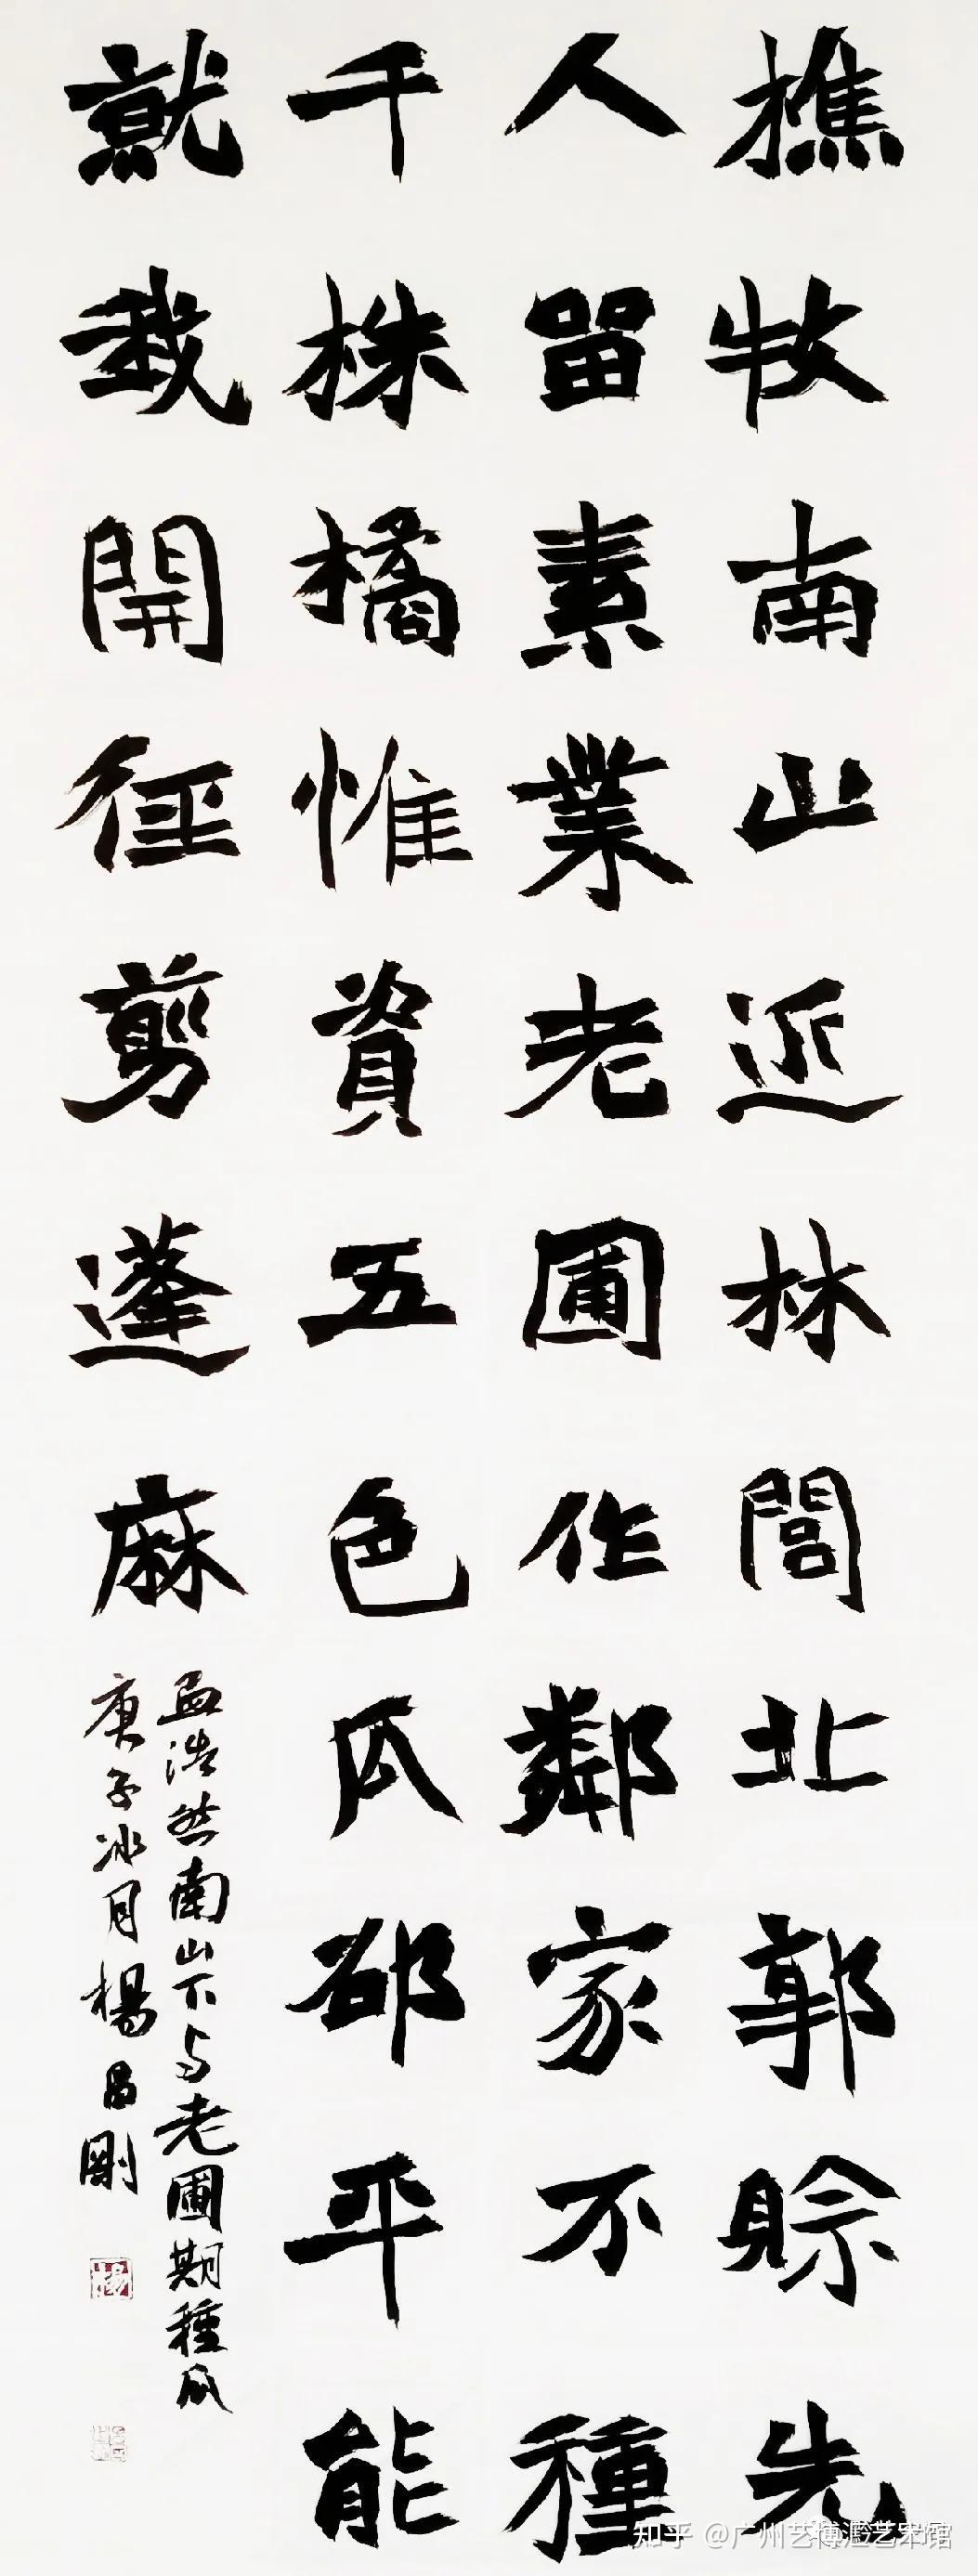 樵牧南山近林閭北郭賒先
人留素業老圃作鄰家不種
千株橘惟資五色瓜邵平能
就我開徑剪蓬麻
孟浩然南山下与老圃期種瓜
庚子冰月楊昌剛
楊
知乎 @广州艺博汇艺术馆